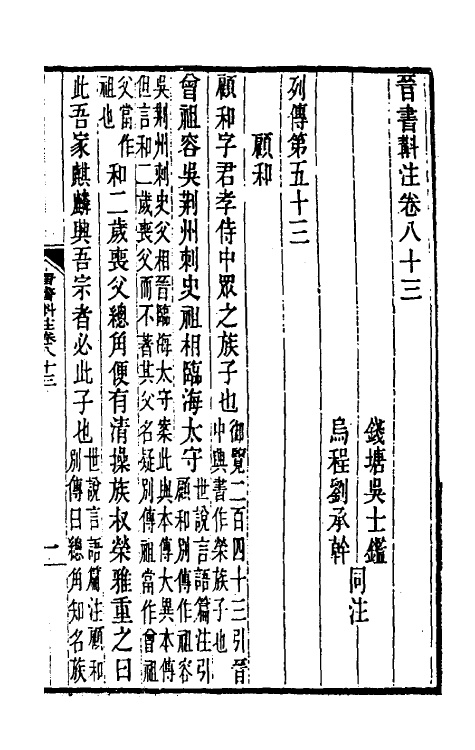 晉書斠注卷八十三
錢塘吳士鑑
烏程劉承幹
同注
列傳第五十三
顧和
顧和字君孝侍中眾之族子也御覽二百四十三引晉
中興書作榮族子也
曾祖容吳荆州刺史祖相臨海太守世說言語篇注引
顧和別傳作祖容
吳荆州刺史父相晉臨海太守案此與本傳大異本傳
但言和二歲喪父而不著其父名疑別傳祖當作曾祖
父當作
祖也
和二歲喪父總角便有清操族叔榮雅重之曰
此吾家麒麟興吾宗者必此子也世說言語篇注顧和
別傳曰總角知名族
晉書斠注卷八十三
一